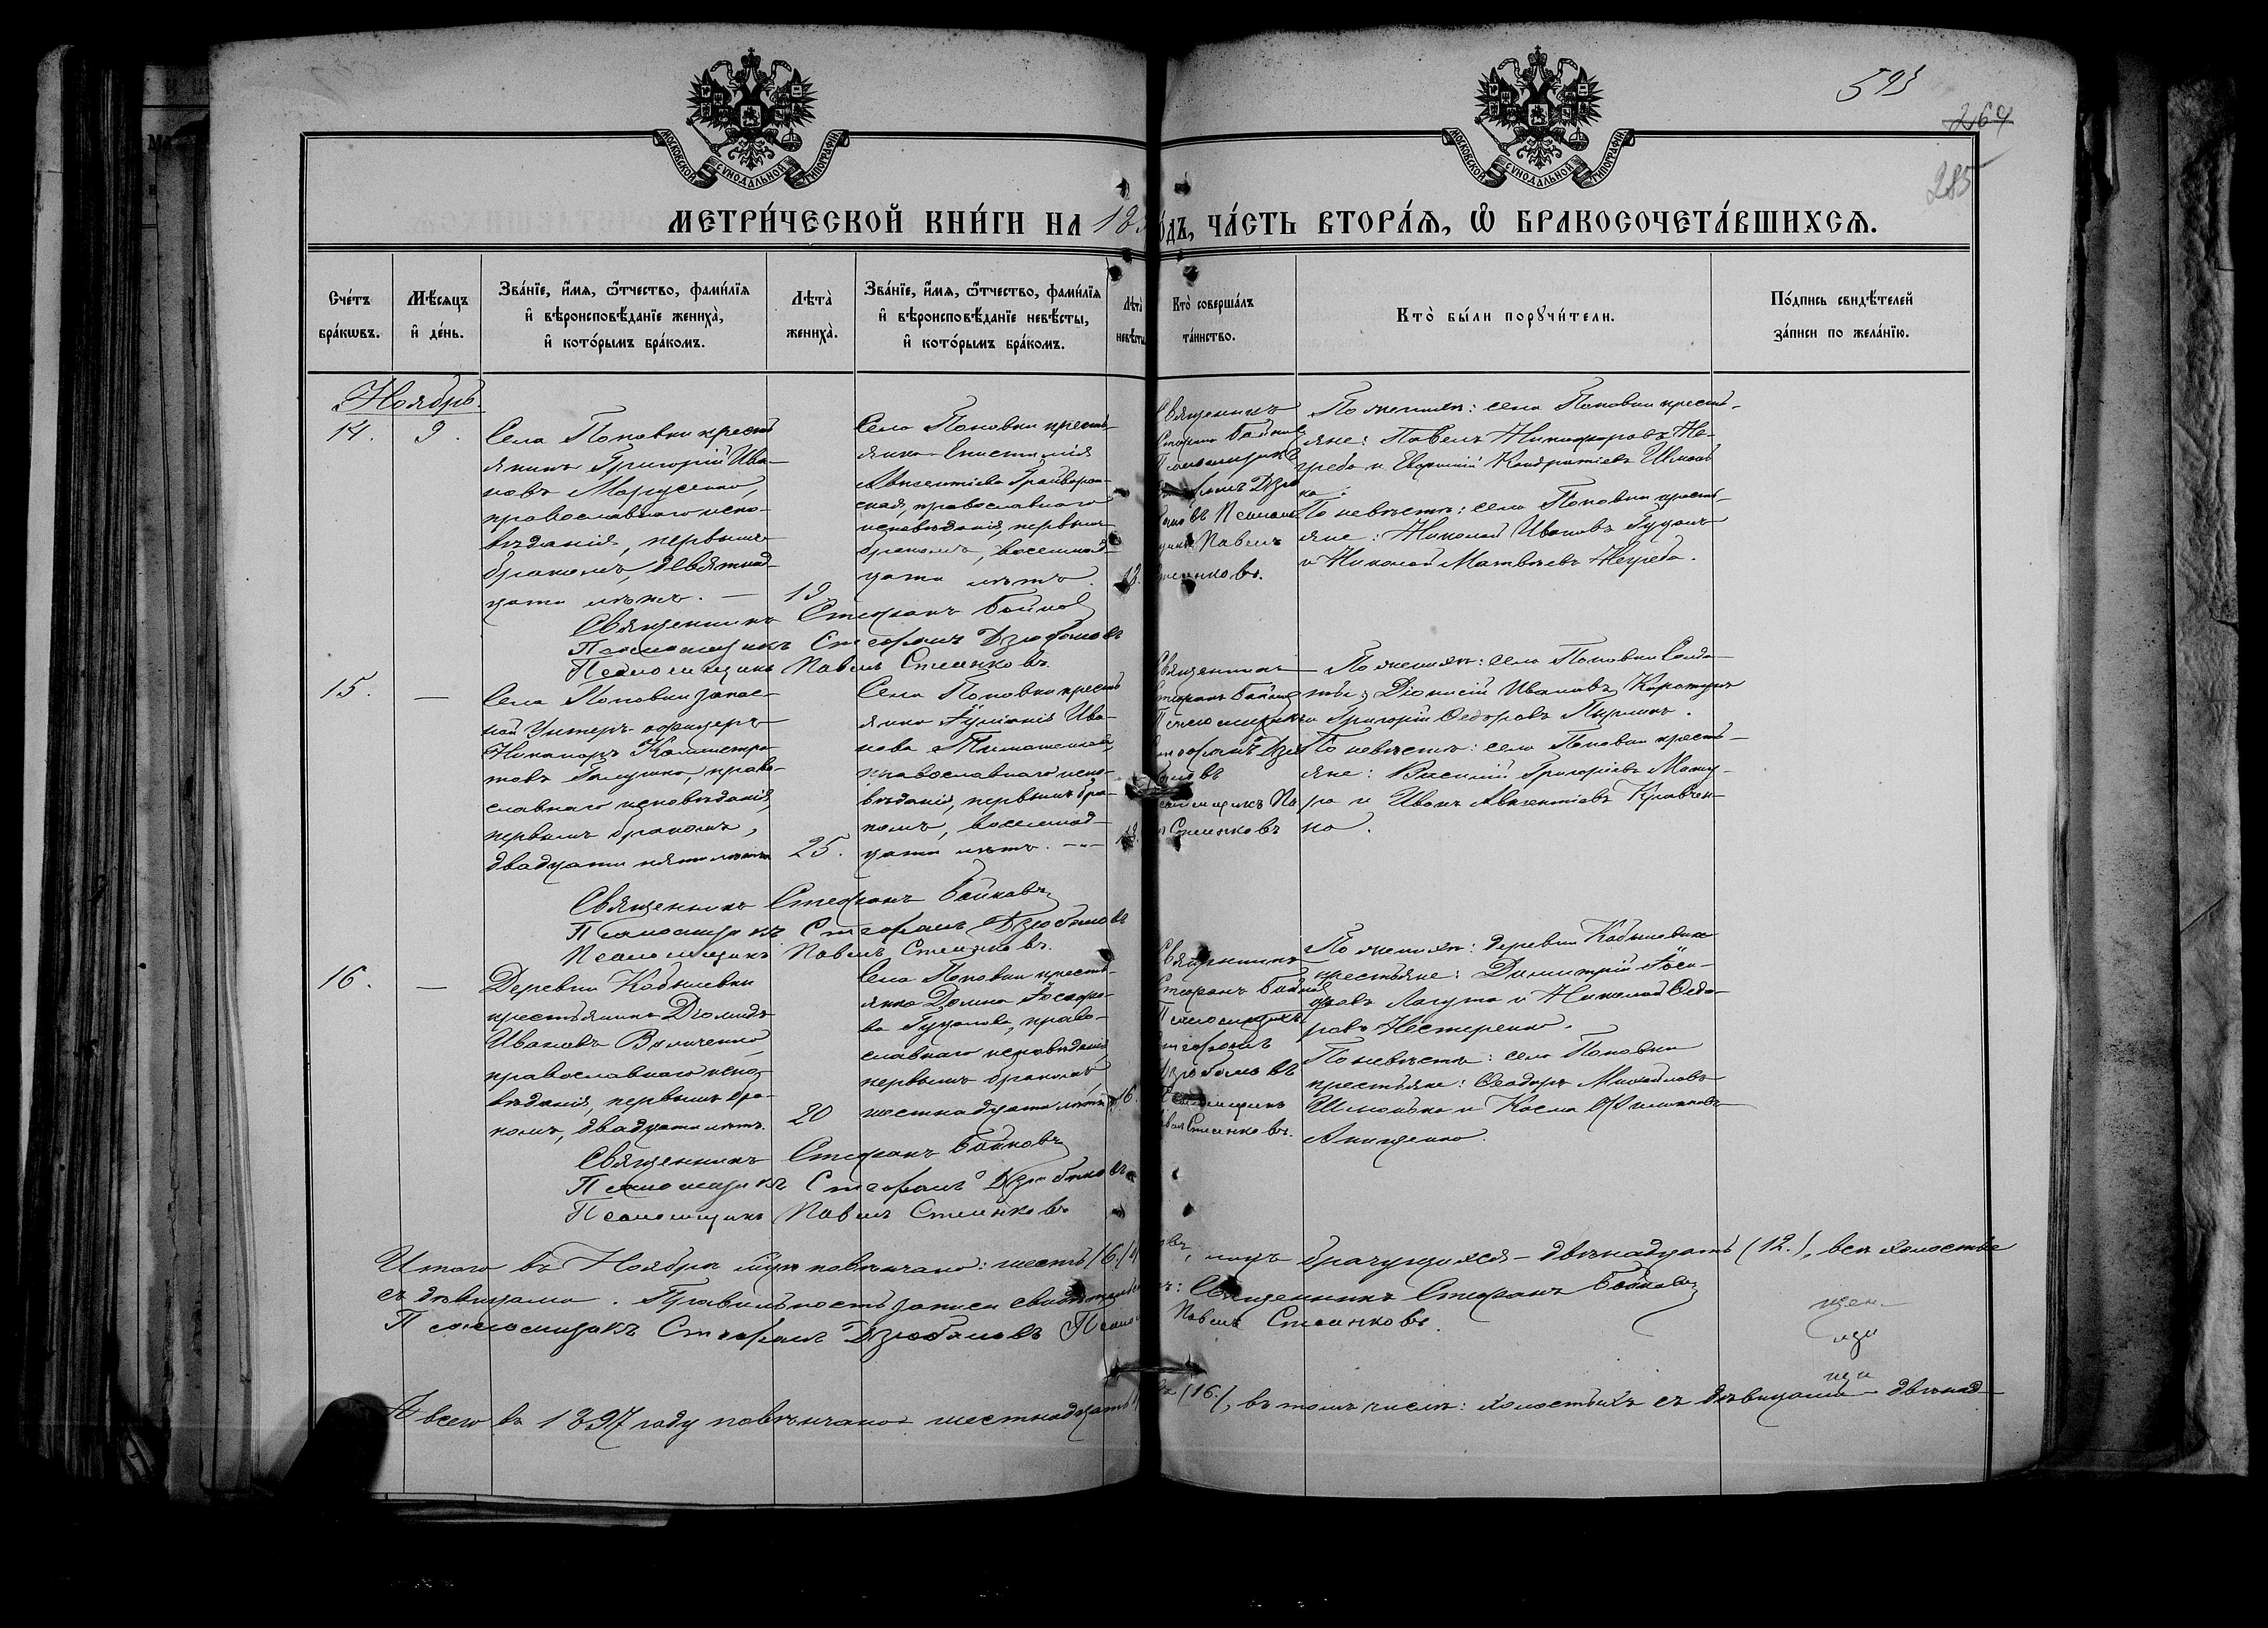 593
264
285
МОСКОВСКОЙ СѴНОДАЛЬНОЙ ТИПОГРАФІИ
МОСКОВСКОЙ СѴНОДАЛЬНОЙ ТИПОГРАФІИ
МЕТРИ́ЧЕСКОЙ КНИ́ГИ НА 18
О́ДЪ, ЧА́СТЬ ВТОРА́Ѧ, Ѿ БРАКОСОЧЕТА́ВШИХСѦ.
Сче́тъ бра́кѡвъ.
Мѣ́сѧцъ и҆ де́нь.
Зва́нїе, и҆́мѧ, ѻ҆́тчество, фами́лїѧ и҆ вѣроисповѣ́данїе жениха̀, и҆ кото́рымъ бра́комъ.
Лѣта̀ жениха̀.
Зва́нїе, и҆́мѧ, ѻ҆́тчество, фами́лїѧ и҆ вѣроисповѣ́данїе невѣ́сты, и҆ кото́рымъ бра́комъ.
Лѣта̀ невѣ́сты
Кто̀ соверша́лъ та́инство.
Кто̀ бы́ли порꙋчи́тели.
По́дпись свидѣ́телей за́писи по жела́нїю.
Ноябрь.
14.
9.
Села Поповки кресть
янинъ Григорій Ива-
новъ Марусенко,
православнаго испо-
вѣданія, первымъ
бракомъ, девятнад-
цати лѣтъ. —
19.
Села Поповки кресть-
янка Епистимія
Авксентіева Грайворон-
ская, православнаго
исповѣданія, первымъ
бракомъ, восемнад-
цати лѣтъ.
18.
Священникъ
Стефанъ Байковъ
Псаломщикъ
Павелъ
Сменковъ.
По женихѣ: села Поповки кресть-
яне: Павелъ Никифоровъ Не-
греба и Евфимій Кондратіевъ
По невѣстѣ: села Поповки кресть-
яне: Николай Ивановъ Гуцалъ
и Николай Матвѣевъ Негреба.
Священникъ Стефанъ Байковъ
Псаломщикъ Стефанъ Дзюбановъ
Псаломщикъ Павелъ Сменковъ.
15.
—
Села Поповки запас-
ной Унтеръ-офицеръ
Никаноръ Калистра-
товъ Галушко, право-
славнаго исповѣданія
первымъ бракомъ,
двадцати пяти лѣтъ
25.
Села Поповки кресть
янка Іуліанія Ива-
нова Тимошенкова,
православнаго испо-
вѣданія, первымъ бра-
комъ, восемнад-
цати лѣтъ. —
18.
Священникъ
Стефанъ Байковъ
Псаломщикъ
Сменковъ
По женихѣ: села Поповки Солда-
ты: Діонисій Ивановъ Коротунъ
и Григорій Федоровъ
По невѣстѣ: села Поповки кресть-
яне: Василій Григоріевъ
и Иванъ Авксентіевъ Кравчен-
ко.
Священникъ Стефанъ Байковъ
Псаломщикъ Стефанъ Дзюбановъ
Псаломщикъ Павелъ Сменковъ.
16.
—
Деревни Кобылевки
крестьянинъ Діомидъ
Ивановъ Величенко
православнаго испо-
вѣданія, первымъ бра-
комъ, двадцати лѣтъ.
20
Села Поповки кресть-
янка Домна Іосифо-
ва Гуцалова, право-
славнаго исповѣданія
первымъ бракомъ
шестнадцати лѣтъ
16.
Священникъ
Стефанъ Байковъ
Псаломщикъ
Стефанъ
Дзюбановъ
Псаломщикъ
Сменковъ.
По женихѣ: деревни Кобылевки
крестьяне: Димитрій Іоси-
фовъ Лагута и Николай Федо-
ровъ Нестеренко.
По невѣстѣ: села Поповки
крестьяне: Ѳеодоръ Михайловъ
Шмонько и Косма Филиповъ
Анищенко.
Священникъ Стефанъ Байковъ
Псаломщикъ Стефанъ Дзюбановъ
Псаломщикъ Павелъ Сменковъ
Итого въ Ноябрѣ повѣнчано: шесть (6) лицъ брачущихся – двѣнадцать (12.), всѣ холостые
съ дѣвицами. Правильность записи Священникъ Стефанъ Байковъ
Псаломщикъ Стефанъ Дзюбановъ Павелъ Сменковъ.
А всего въ 1897 году повѣнчано шестнадцать (16.), въ томъ числѣ: холостыхъ съ дѣвицами – двѣнад-